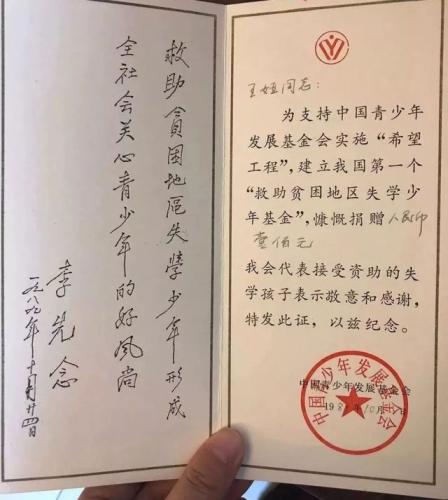 救助贫困地區失學少年形成
全社会关心青少年的好风尚
李先念
一九八九年十月廿四日
同志：
为支持中国青少年
发展基金会实施“希望
工程”，建立我国第一个
“救助贫困地区失学少
年基金”，慷慨捐赠人民币
壹佰元
我会代表接受资助的失
学孩子表示敬意和感谢，
特发此证，以兹纪念。
中国青少年发展基金会
中国青少年发展基金会